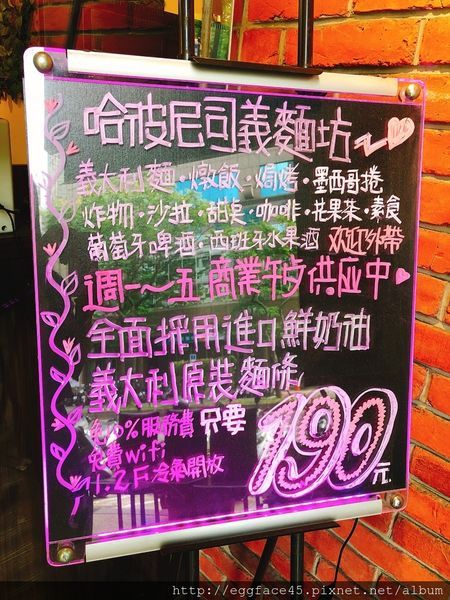 哈彼尼司義麵坊
義大利麵·燉飯·焗烤·墨西哥捲
炸物·沙拉·甜點·咖啡·花果茶·素食
葡萄牙啤酒·西班牙水果酒 欢迎外帶
週一～五商業午歺供应中
全面採用進口鮮奶油
義大利原裝麵條
免10%服務費 只要 190元
免費wifi
1.2F冷氣開放
http://eggface45.pixnet.net/album